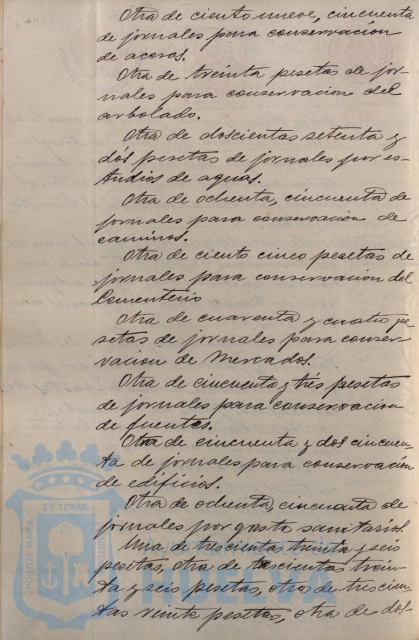 Otra de ciento nueve, cincuenta
de jornales para conservación
de aceras.
Otra de treinta pesetas de jor-
nales para conservacion del
arbolado.
Otra de doscientas setenta y
dós pesetas de jornales por es-
tudios de aguas.
Otra de ochenta, cincuenta de
jornales para conservación de
caminos.
Otra de ciento cinco pesetas de
jornales para conservacion del
Cementerio
Otra de cuarenta y cuatro pe
setas de jornales para conser-
vacion de Mercados.
Otra de cincuenta y trés pesetas
de jornales para conservacion
de fuentes.
Otra de cincuenta y dos cincuen-
ta de jornales para conservación
de edificios.
Otra de ochenta, cincuenta de
jornales por gasto sanitario.
Una de trescientas treinta y seis
pesetas, otra de trescientas trein-
ta y seis pesetas, otra de trescien-
tas veinte pesetas, otra de dos
PORTUS MARIS
ET TERRAE
HUELVA